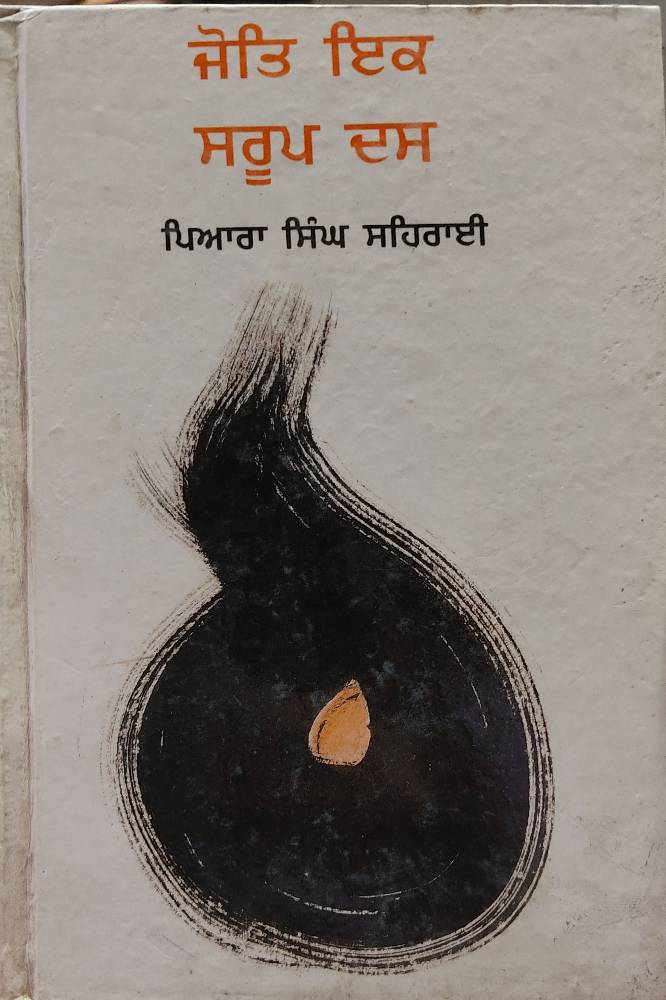 ਜੋਤਿ ਇਕ
ਸਰੂਪ ਦਸ
ਪਿਆਰਾ ਸਿੰਘ ਸਹਿਰਾਈ